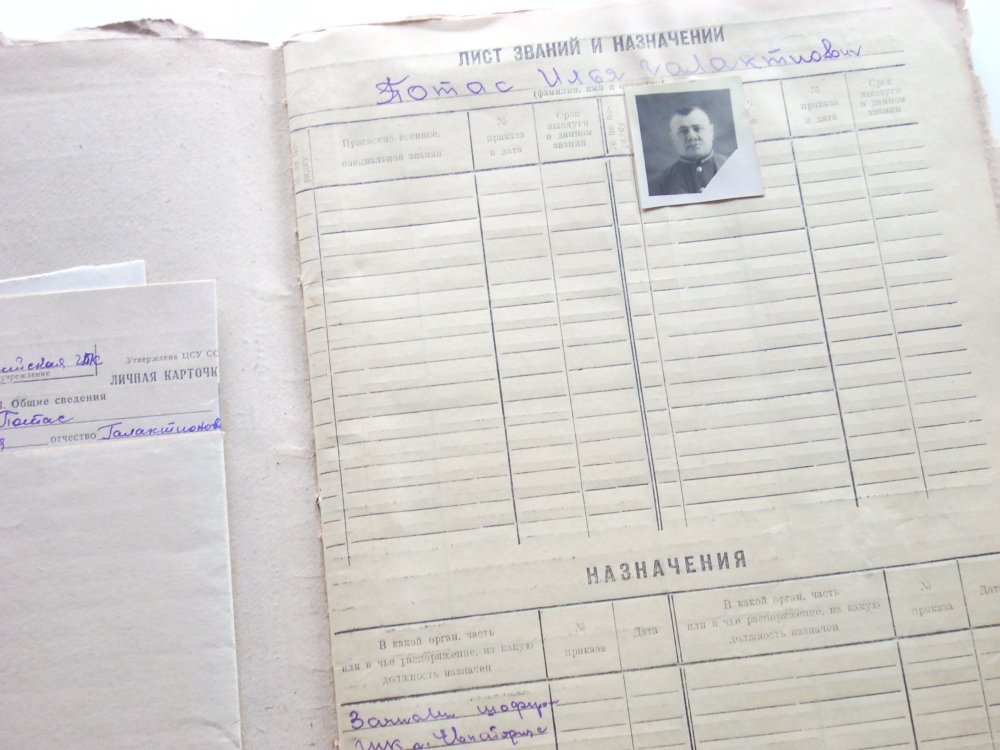 ЛИСТ ЗВАНИЙ И НАЗНАЧЕНИЙ
Потас Илья Галактионович
(фамилия, имя и отчество)
Присвоено военное,
специальное звание
№
приказа
и дата
Срок
выслуги
в данном
звании
№
приказа
и дата
Срок
выслуги
в данном
звании
НАЗНАЧЕНИЯ
В какой орган, часть
или в чье распоряжение, на какую
должность назначен
№
приказа
Дата
В какой орган, часть
или в чье распоряжение, на какую
должность назначен
№
приказа
Дата
Зачислен шофером
учреждение
Утверждена ЦСУ СС
ЛИЧНАЯ КАРТОЧК
I. Общие сведения
Потас
отчество Галактионов